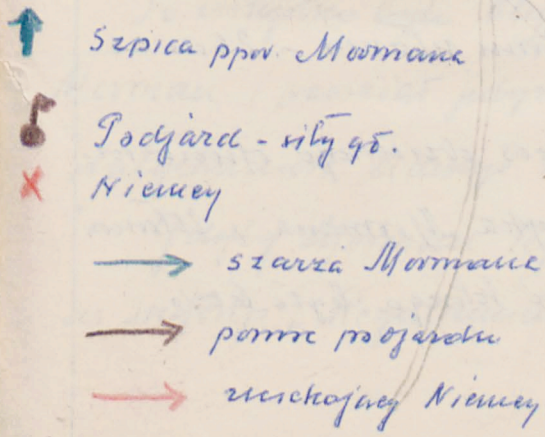 Szpica ppor Mormana
Podjazd - siły gł.
Niemcy
szarża Mormana
pomoc podjazdu
uciekający Niemcy